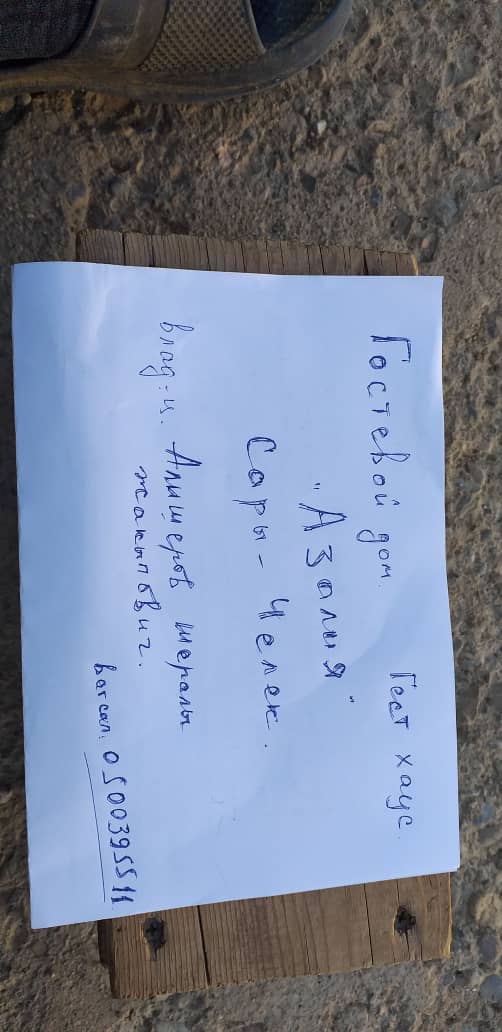 Гостевой дом. Гест хаус.
"Азалия"
Сары-Челек.
влад-ц. Алишеров шералы
жакыпович.
ватсап. 0500395511